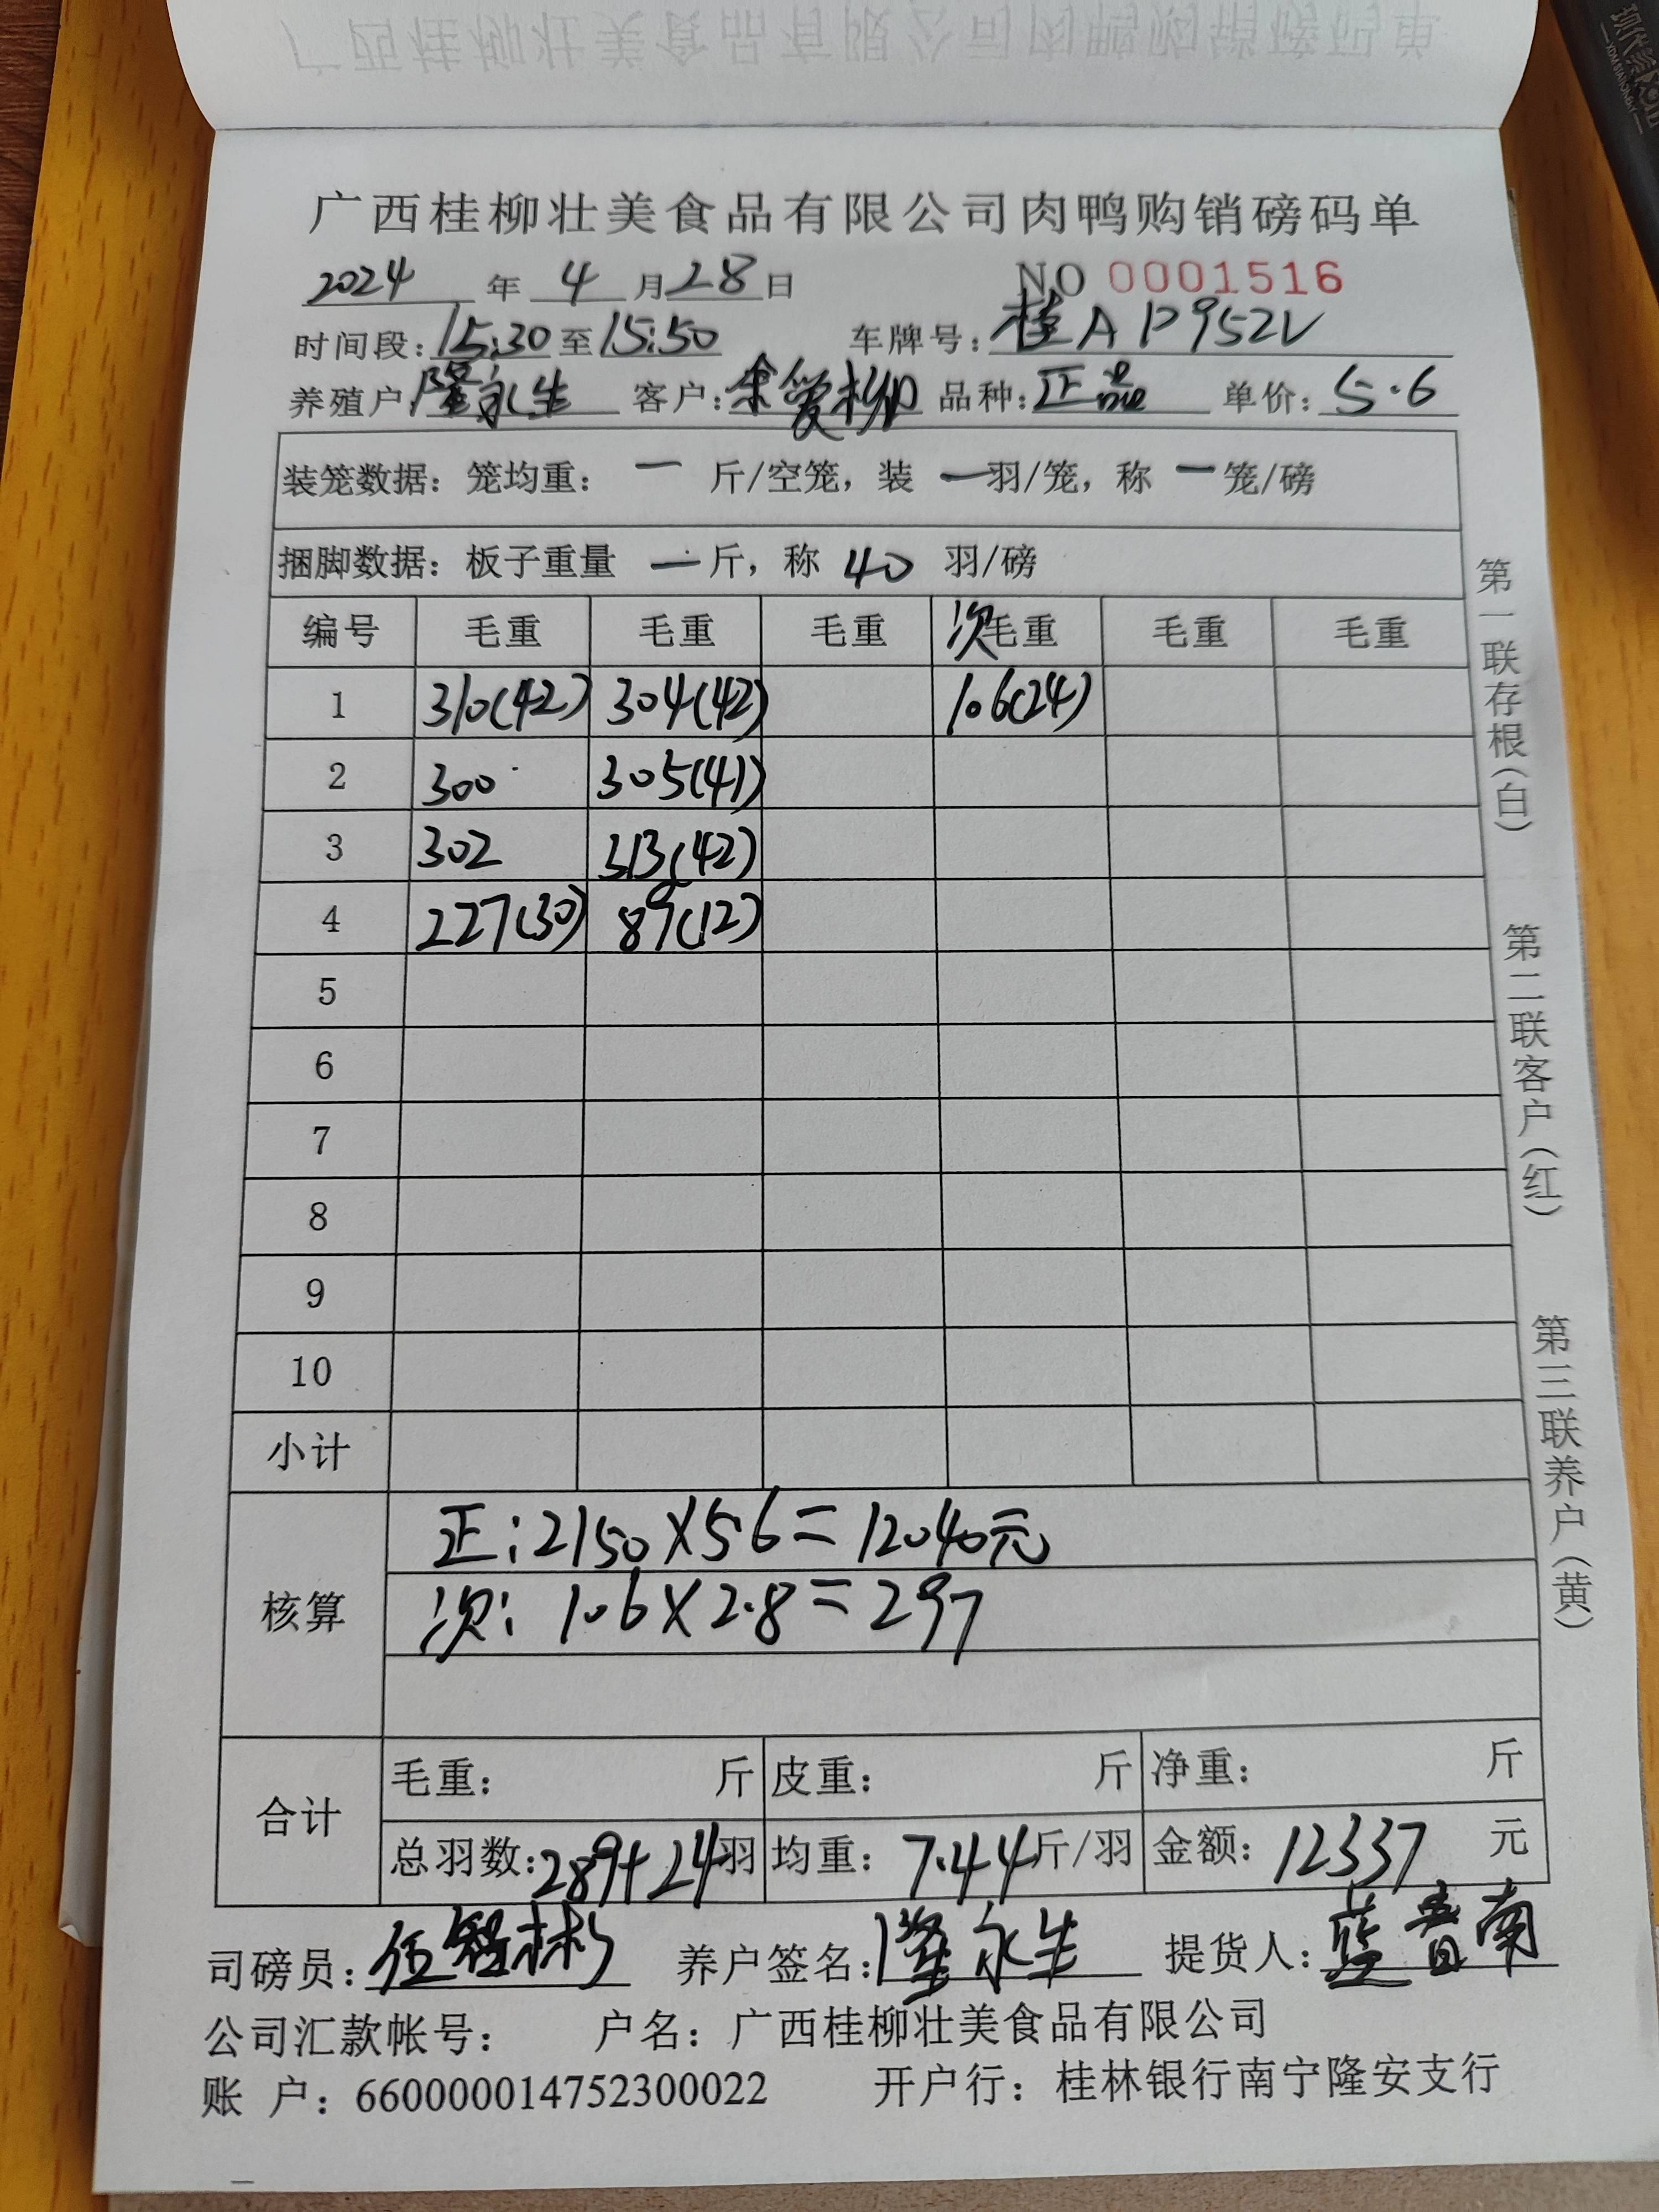 广西桂柳壮美食品有限公司肉鸭购销磅码单
2024 年 4 月 28 日 NO 0001516
时间段:15:30 至 15:50 车牌号: 桂A P952V
养殖户:隆永生 客户:余爱柳 品种:正品 单价:5.6
装笼数据: 笼均重: 一 斤/空笼, 装 一 羽/笼, 称 一 笼/磅
捆脚数据: 板子重量 一 斤, 称 40 羽/磅
编号 毛重 毛重 毛重 次毛重 毛重 毛重
1 310(42) 304(42) 106(24)
2 300 305(41)
3 302 313(42)
4 227(30) 89(12)
5
6
7
8
9
10
小计
核算
正:2150×5.6=12040元
次: 106×2.8=297
合计
毛重: 斤 皮重: 斤 净重: 斤
总羽数:289+24羽 均重: 7.44斤/羽 金额: 12337 元
司磅员:伍智彬 养户签名:隆永生 提货人:蓝香南
公司汇款帐号: 户名: 广西桂柳壮美食品有限公司
账 户: 660000014752300022 开户行: 桂林银行南宁隆安支行
第一联存根(白) 第二联客户(红) 第三联养户(黄)